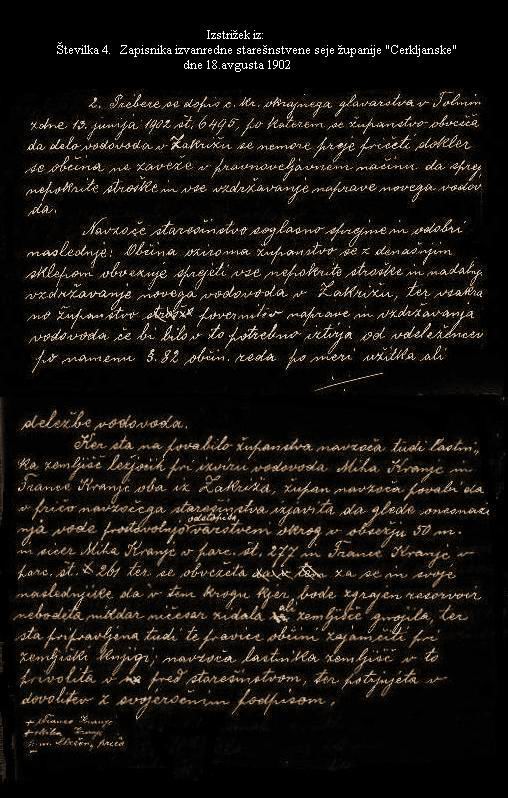 Izstrižek iz:
Številka 4. Zapisnika izvanredne starešnstvene seje županije "Cerkljanske"
dne 18.avgusta 1902
2. Prebere se dopis c. kr. okrajnega glavarstva v Tolmin
z dne 13. junija 1902 št. 6495, po katerem se županstvo obvešča
da delo vodovoda v Zakrižu se nemore prije pričeti dokler
se občina ne zaveže v pravnoveljavnem načinu da sprej
nepokrite stroške in vse vzdržavanje naprave novega vodov
da.
Navzoče starešinstvo soglasno sprejme in odobri
naslednje: Občina oziroma županstvo se z denašnjim
sklepom obvezuje sprejeti vse nepokrite stroške in nadalnje
vzdržavanje novega vodovoda v Zakrižu, ter
no županstvo povrnitev naprave in vzdržavanja
vodovoda če bi bilo v to potrebno iztirja od vdeležencev
po namenu §. 82 občin. reda po meri užitka ali
deležbe vodovoda.
Ker sta na povabilo županstva navzoča tudi lastni
ka zemljišč ležječih pri izviru vodovoda Miha Kranjc in
France Kranjc oba iz Zakriža, župan navzoča povabi da
v pričo navzočega starešinstva izjavita da glede onesnaže
nja vode prostovoljno odstopita varstveni okrog v obsežju 50 m.
in sicer Miha Kranjc v parc. št. 277 in France Kranjc v
parc. št. 261 ter se obvežeta za se in svoje
naslednjike da v tem krogu kjer bode zgrajen rezervoir
nebodeta nikdar ničesar zidala ali zemljišč gnojila, ter
sta pripravljena tudi te pravice občini zajamčiti pri
zemljiški knjigi; navzoča lastnika zemljišč v to
privolita v pred starešinstvom, ter potrjujeta v
dovolitev z svojeročnim podpisom.
+ Franco Kranjc
+ Miha Kranjc
priča